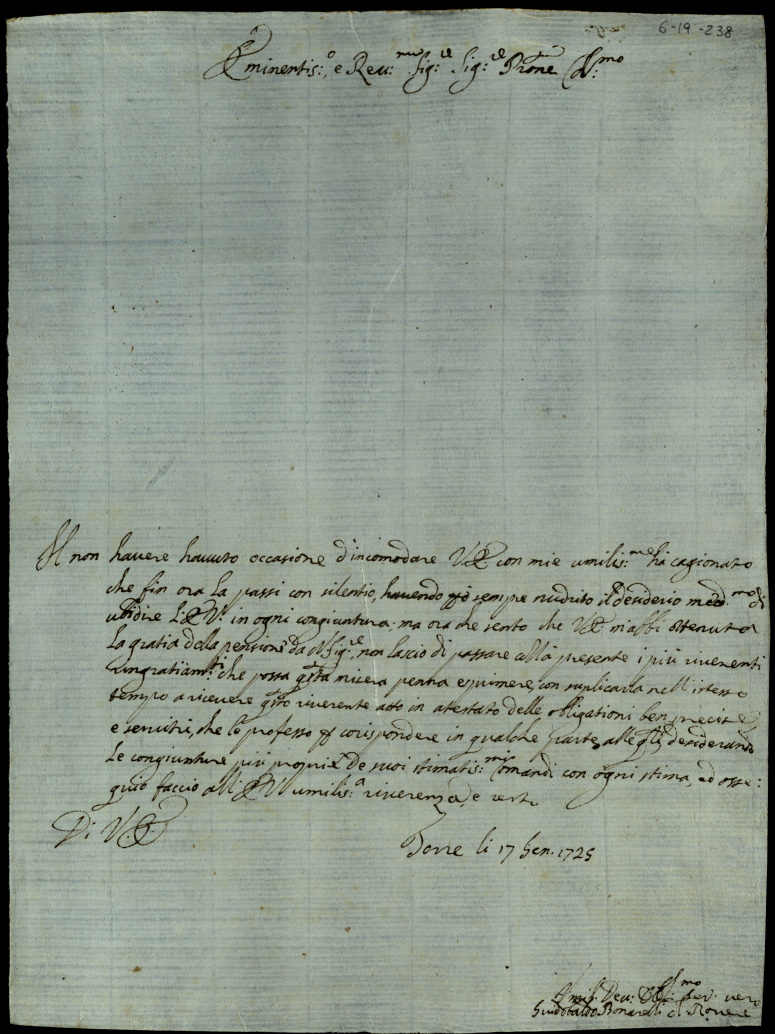 6-19-238
Eminentis:º e Reu:mo Sig:re Sig:re Prone Col:mo
Il non hauere hauuto occasione d'incomodare V.E. con mie umilis:me ha cagionato
che fin ora la passi con silentio, hauendo però sempre nudrito il desiderio med:mo di
ubidire l'E.V. in ogni congiuntura: ma ora che sento che V.E. m'abbi ottenuto
la gratia della pensione da N. Sig:re, non lascio di passare colla presente i più riuerenti
ringratiam:ti che possa q:sta misera penna esprimere, con suplicarla nell'istesso
tempo a riceuere q:sto riuerente atto in atestato delle obligationi ben precise
e seruitù, che le professo per corispondere in qualche parte alle q:li, desiderando
le congiunture più proprie de suoi stimatis:mi comandi con ogni stima, ed osse:
quio faccio all'E.V. umilis:a riuerenza, e resto
Di V.E.
Torre li 17 Gen. 1725
Umil: Deu: Obl:mo Ser: uero
Guidobaldo Bonarelli d. Rouere